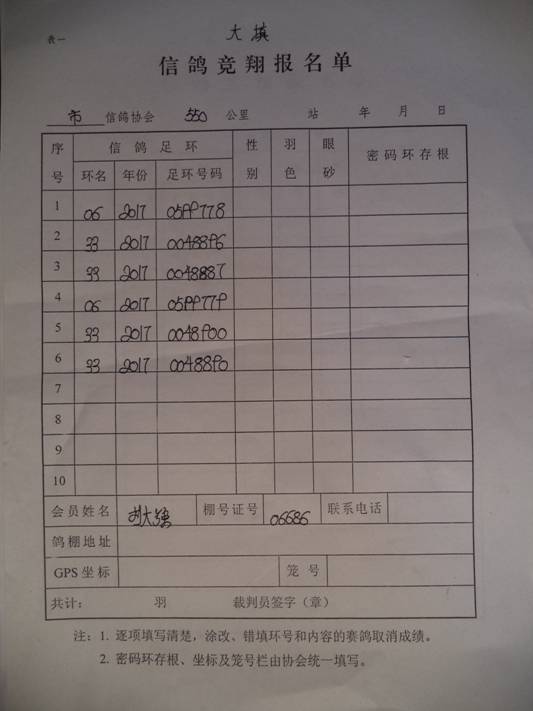 大填
表一
信鸽竞翔报名单
市 信鸽协会 550 公里 站 年 月 日
序号 信鸽足环 性别 羽色 眼砂 密码环存根
环名 年份 足环号码
1 06 2017 0599778
2 33 2017 0048896
3 33 2017 0048887
4 06 2017 0599779
5 33 2017 0048900
6 33 2017 0048890
7
8
9
10
会员姓名 棚号证号 06686 联系电话
鸽棚地址
GPS坐标 笼号
共计: 羽 裁判员签字(章)
注:1. 逐项填写清楚,涂改、错填环号和内容的赛鸽取消成绩。
2. 密码环存根、坐标及笼号栏由协会统一填写。